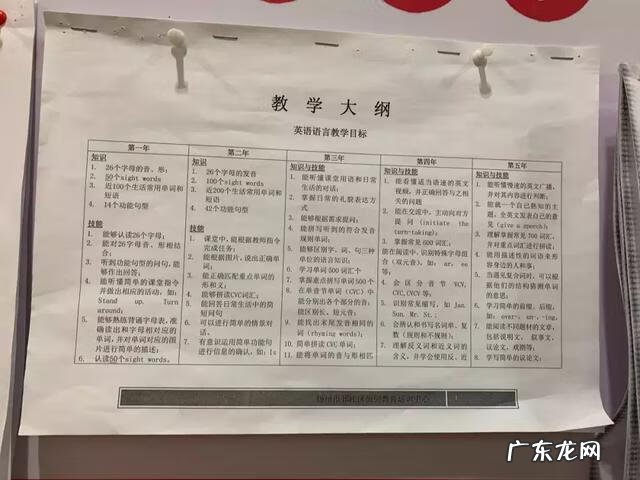 教 学 大 纲
英语语言教学目标
第一年
知识
1. 26个字母的音、形;
2. 50个sight words
3. 近100个生活常用单词和
短语
4. 14个功能句型
技能
1. 能够认读26个字母;
2. 能对26字母音、形相结
合;
3. 听到功能句型的问句,能
够作出回答;
4. 能听懂简单的课堂指令
并做出相应的活动,如:
Stand up. Turn
around;
5. 能够熟练背诵字母表,准
确读出和字母相对应的
单词,并对单词对应的图
片进行简单的描述;
6. 认读50个sight words。
第二年
知识
1. 26个字母的发音
2. 100个sight words
3. 近200个生活常用单词和
短语
4. 42个功能句型
技能
1. 课堂中,能根据教师指令
完成任务;
2. 能根据图片,说出正确单
词;
3. 能正确匹配重点单词的
形和义;
4. 能够拼读CVC词汇;
5. 能回答日常生活中的简
短问句
6. 可以进行简单的情景对
话。
7. 有意识运用简单功能句
进行信息的确认,如:Is
第三年
知识与技能
1. 能听懂课堂用语和日常
生活的对话;
2. 掌握日常的礼貌表达方
式
3. 能够根据需求提问;
4. 能拼写听到的符合发音
规则单词;
5. 能够区别字、词、句三种
单位的语言知识;
6. 学习单词 500 词汇个
7. 掌握重点拼写单词 500个
8. 在单音节单词(CVC)中
能分别出各个部分的音;
能区别长、短元音;
9. 能找出末尾发音相同的
词(rhyming words);
10. 简单拼读 CVC 单词;
11. 能将单词的音与形相匹
第四年
知识与技能
1. 能看懂适当语速的英文
视频,并正确回答与之相
关的问题
2. 能在交流中,主动向对方
提问(initiate the
turn-taking);
3. 掌握常见600词汇;
4. 能在阅读中,识别特殊字母组
合(双元音)、如:ar, ee
等;
5. 会区分音节 VCV,
CVC,CVCV 等;
6. 识别常见缩写,如 Jan.
Sun. Mr. St.;
7. 会辨认和书写名词单、复
数(规则和不规则);
8. 理解反义词和近义词的
含义,并学会使用反、近
第五年
知识与技能
1. 能听懂慢速的英文广播,
并对其内容进行判断;
2. 能就一个自己熟知的主
题,全英文发表自己的意
见(give a speech);
3. 理解掌握常见 700 词汇,
并对重点词汇进行拼读;
4. 能用描述性的词语来形
容身边的人和事;
5. 当遇见复合词时,可以根
据他们的结构猜测单词
的意思;
6. 学习简单的前缀,后缀,
如:over-, un-, -ing,
7. 能阅读不同题材的文章,
包括说明文、叙事文、
议论文,戏剧等;
8. 学写简单的议论文;
广东龙网